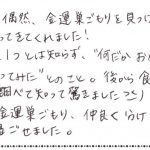 偶然、金運巣ごもりを見つけ
ってきてくれました!
1つとは知らず、"何だかお
ってみた"とのこと。後から食
調べて知って驚きましたっ
金運巣ごもり、仲良く分け
過ごせました。